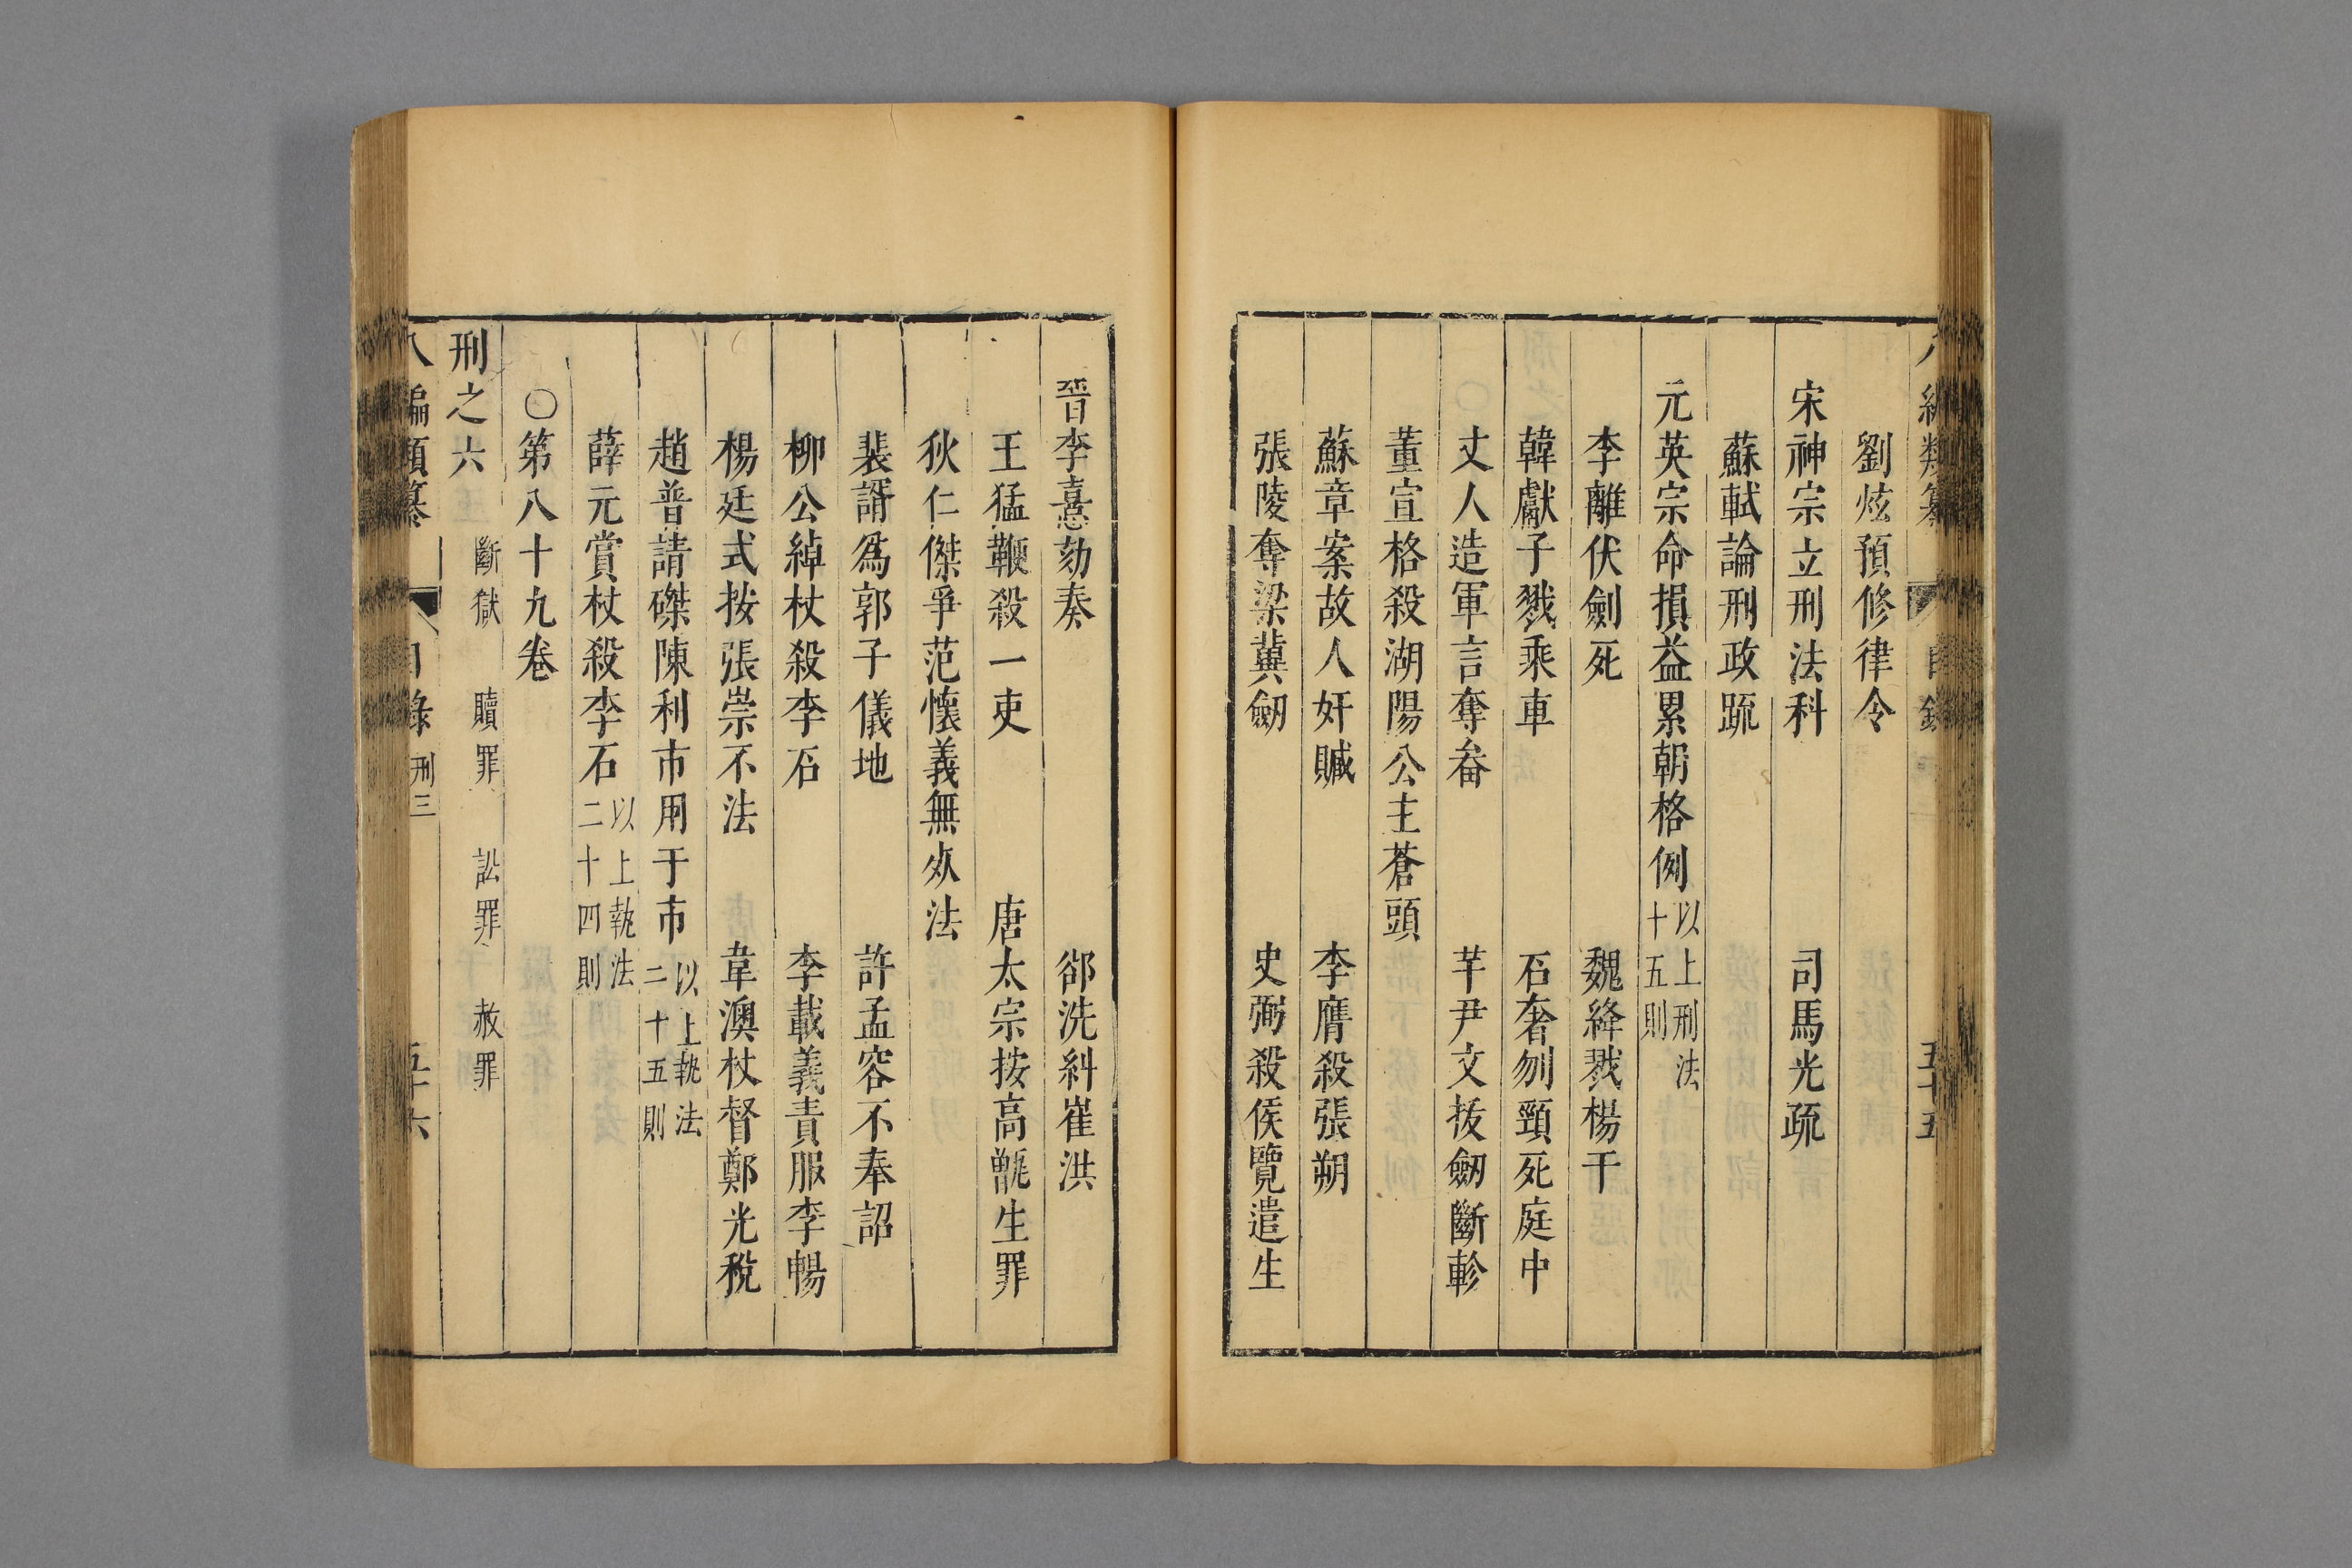 八編類纂 目錄 五十五
劉炫預修律令
宋神宗立刑法科 司馬光疏
蘇軾論刑政疏
元英宗命損益累朝格例 以上刑法十五則
李離伏劍死 魏絳戮楊干
韓獻子戮乘車 石奢刎頸死庭中
丈人造軍言奪畚 芊尹文拔劒斷軫
董宣格殺湖陽公主蒼頭
蘇章案故人奸贓 李膺殺張朔
張陵奪梁冀劒 史弼殺侯覽遣生
晉李憙劾奏 郤洗糾崔洪
王猛鞭殺一吏 唐太宗按高甑生罪
狄仁傑爭范懷義無死法
裴諝為郭子儀地 許孟容不奉詔
柳公綽杖殺李石 李載義責服李暢
楊廷式按張崇不法 韋澳杖督鄭光稅
趙普請磔陳利市用于市 以上執法二十五則
薛元賞杖殺李石 以上執法二十四則
〇第八十九卷
刑之六 斷獄 贖罪 訟罪 赦罪
八編類纂 目錄 刑三 五十六